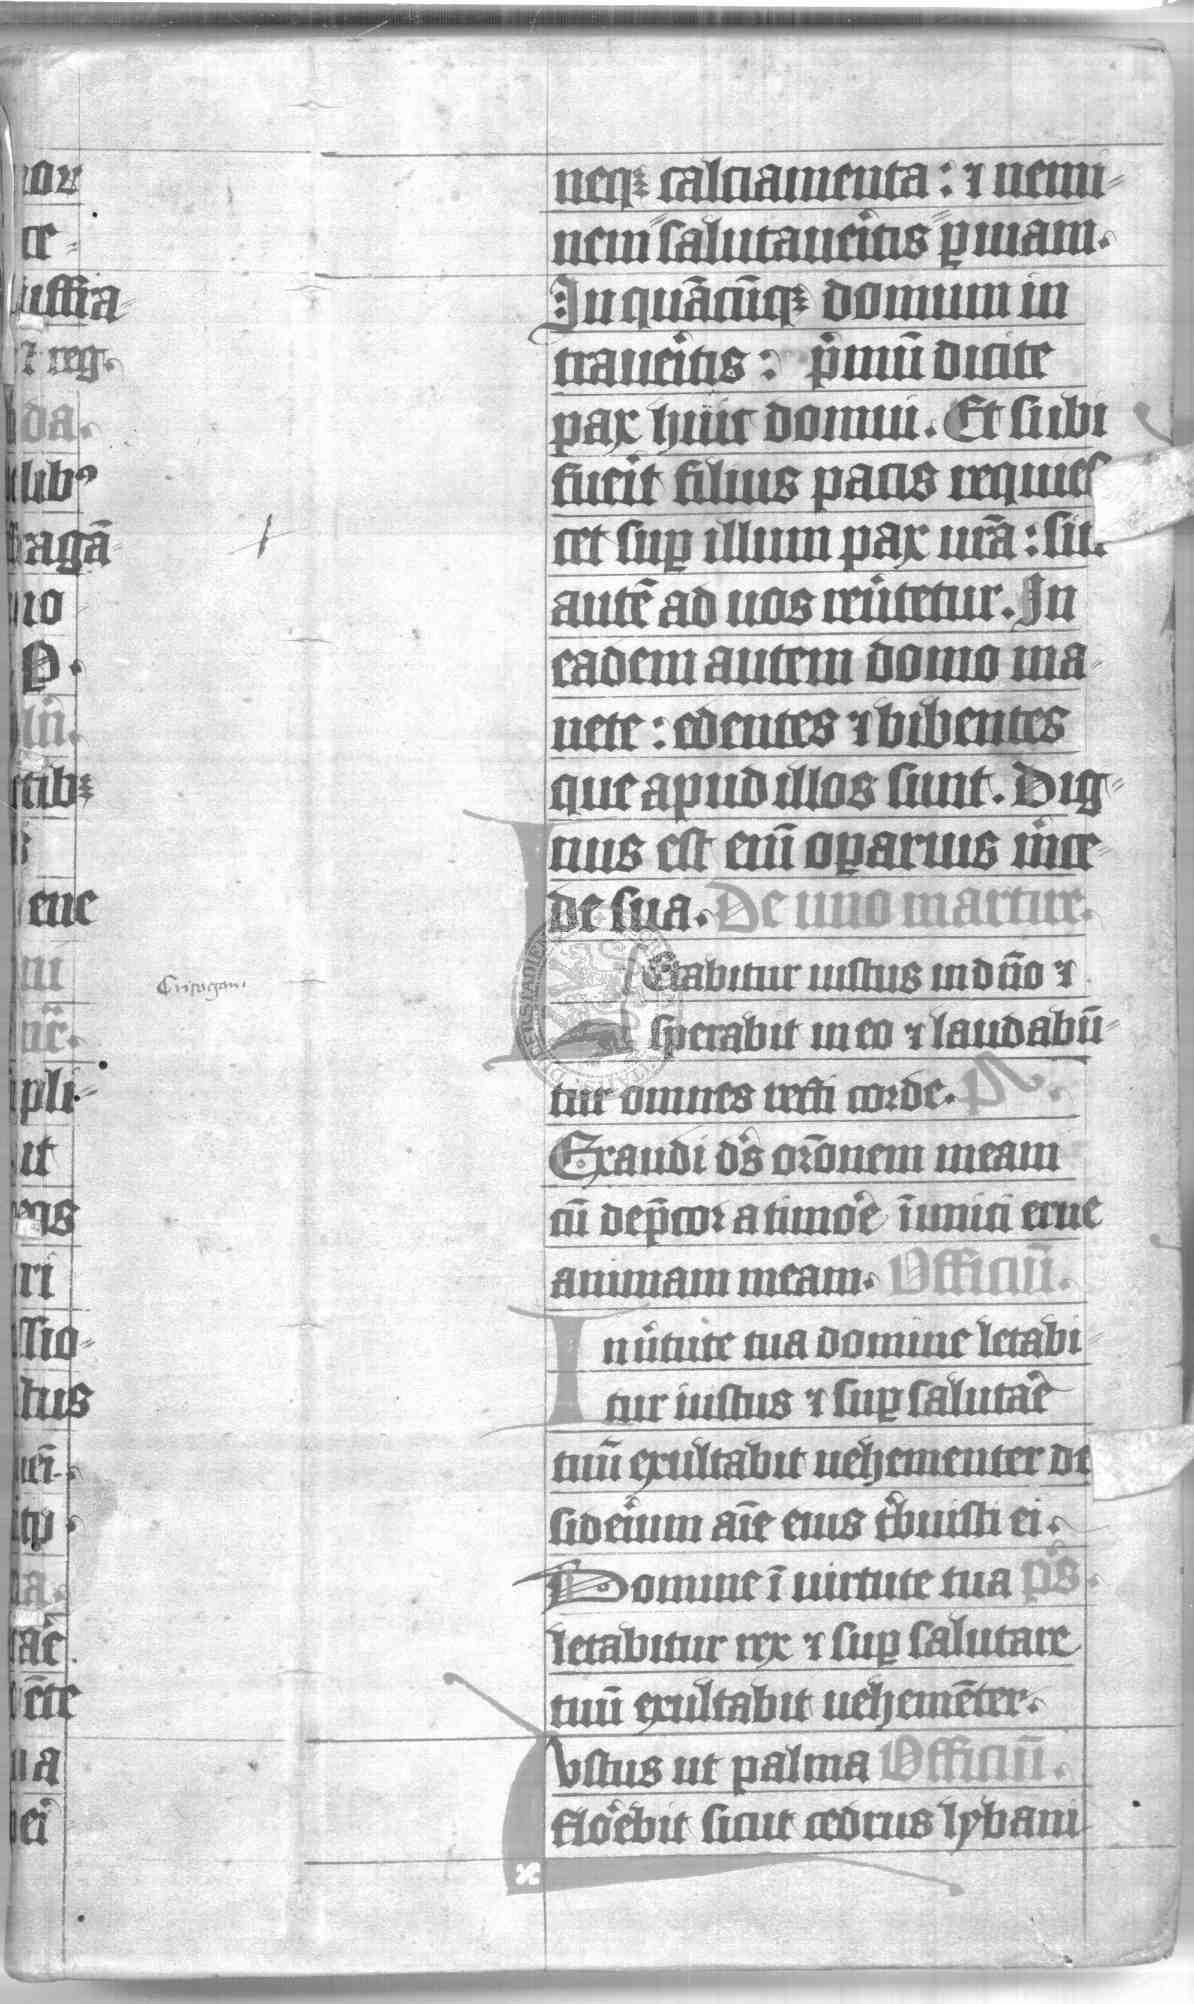 nor
ce⸗
uffra⸗
⁊ reg.
da.
libꝰ
fragā⸗
no
P.
lꝰn.
tibꝫ
ene
m
nc̄.
pli⸗
it
egs
ri
ssio⸗
stus
uei.
itp.
a.
tac̄
ēte
na
ei
Cri sogoni
neqꝫ calciamenta : ⁊ nemi⸗
nem salutaueͥitis ꝑ uiam.
In quācūqꝫ domum in
traueͥitis : pͥmū dicite
pax huic domui. Et si ibi
fueͥit filius pacis requies
cet suꝑ illum pax ur̄a : sin
autē ad uos reuͥtetur. In
eadem autem domo ma⸗
nete : edentes ⁊ bibentes
que apud illos sunt. Dig⸗
nus est eni̅ oꝑarius mͥce⸗
de sua. De uno martire.
Letabitur iustus in dn̄o ⁊
sperabit in eo ⁊ laudabū⸗
tur omnes recti corde. Ps.
Exaudi ds̄ or̄onem meam
cū dep̄cor a timoͤe īimici erue
animam meam. Officiū.
In uͥtute tua domine letabi⸗
tur iustus ⁊ suꝑ salutar̄e
tuū exultabit uehementer de
sideͥium aīe eius tͥbuisti ei.
Domine ī uirtute tua ps̄.
letabitur rex ⁊ suꝑ salutare
tuū exultabit uehemēter.
Iustus ut palma Officiū.
floͤebit sicut cedrus lybani